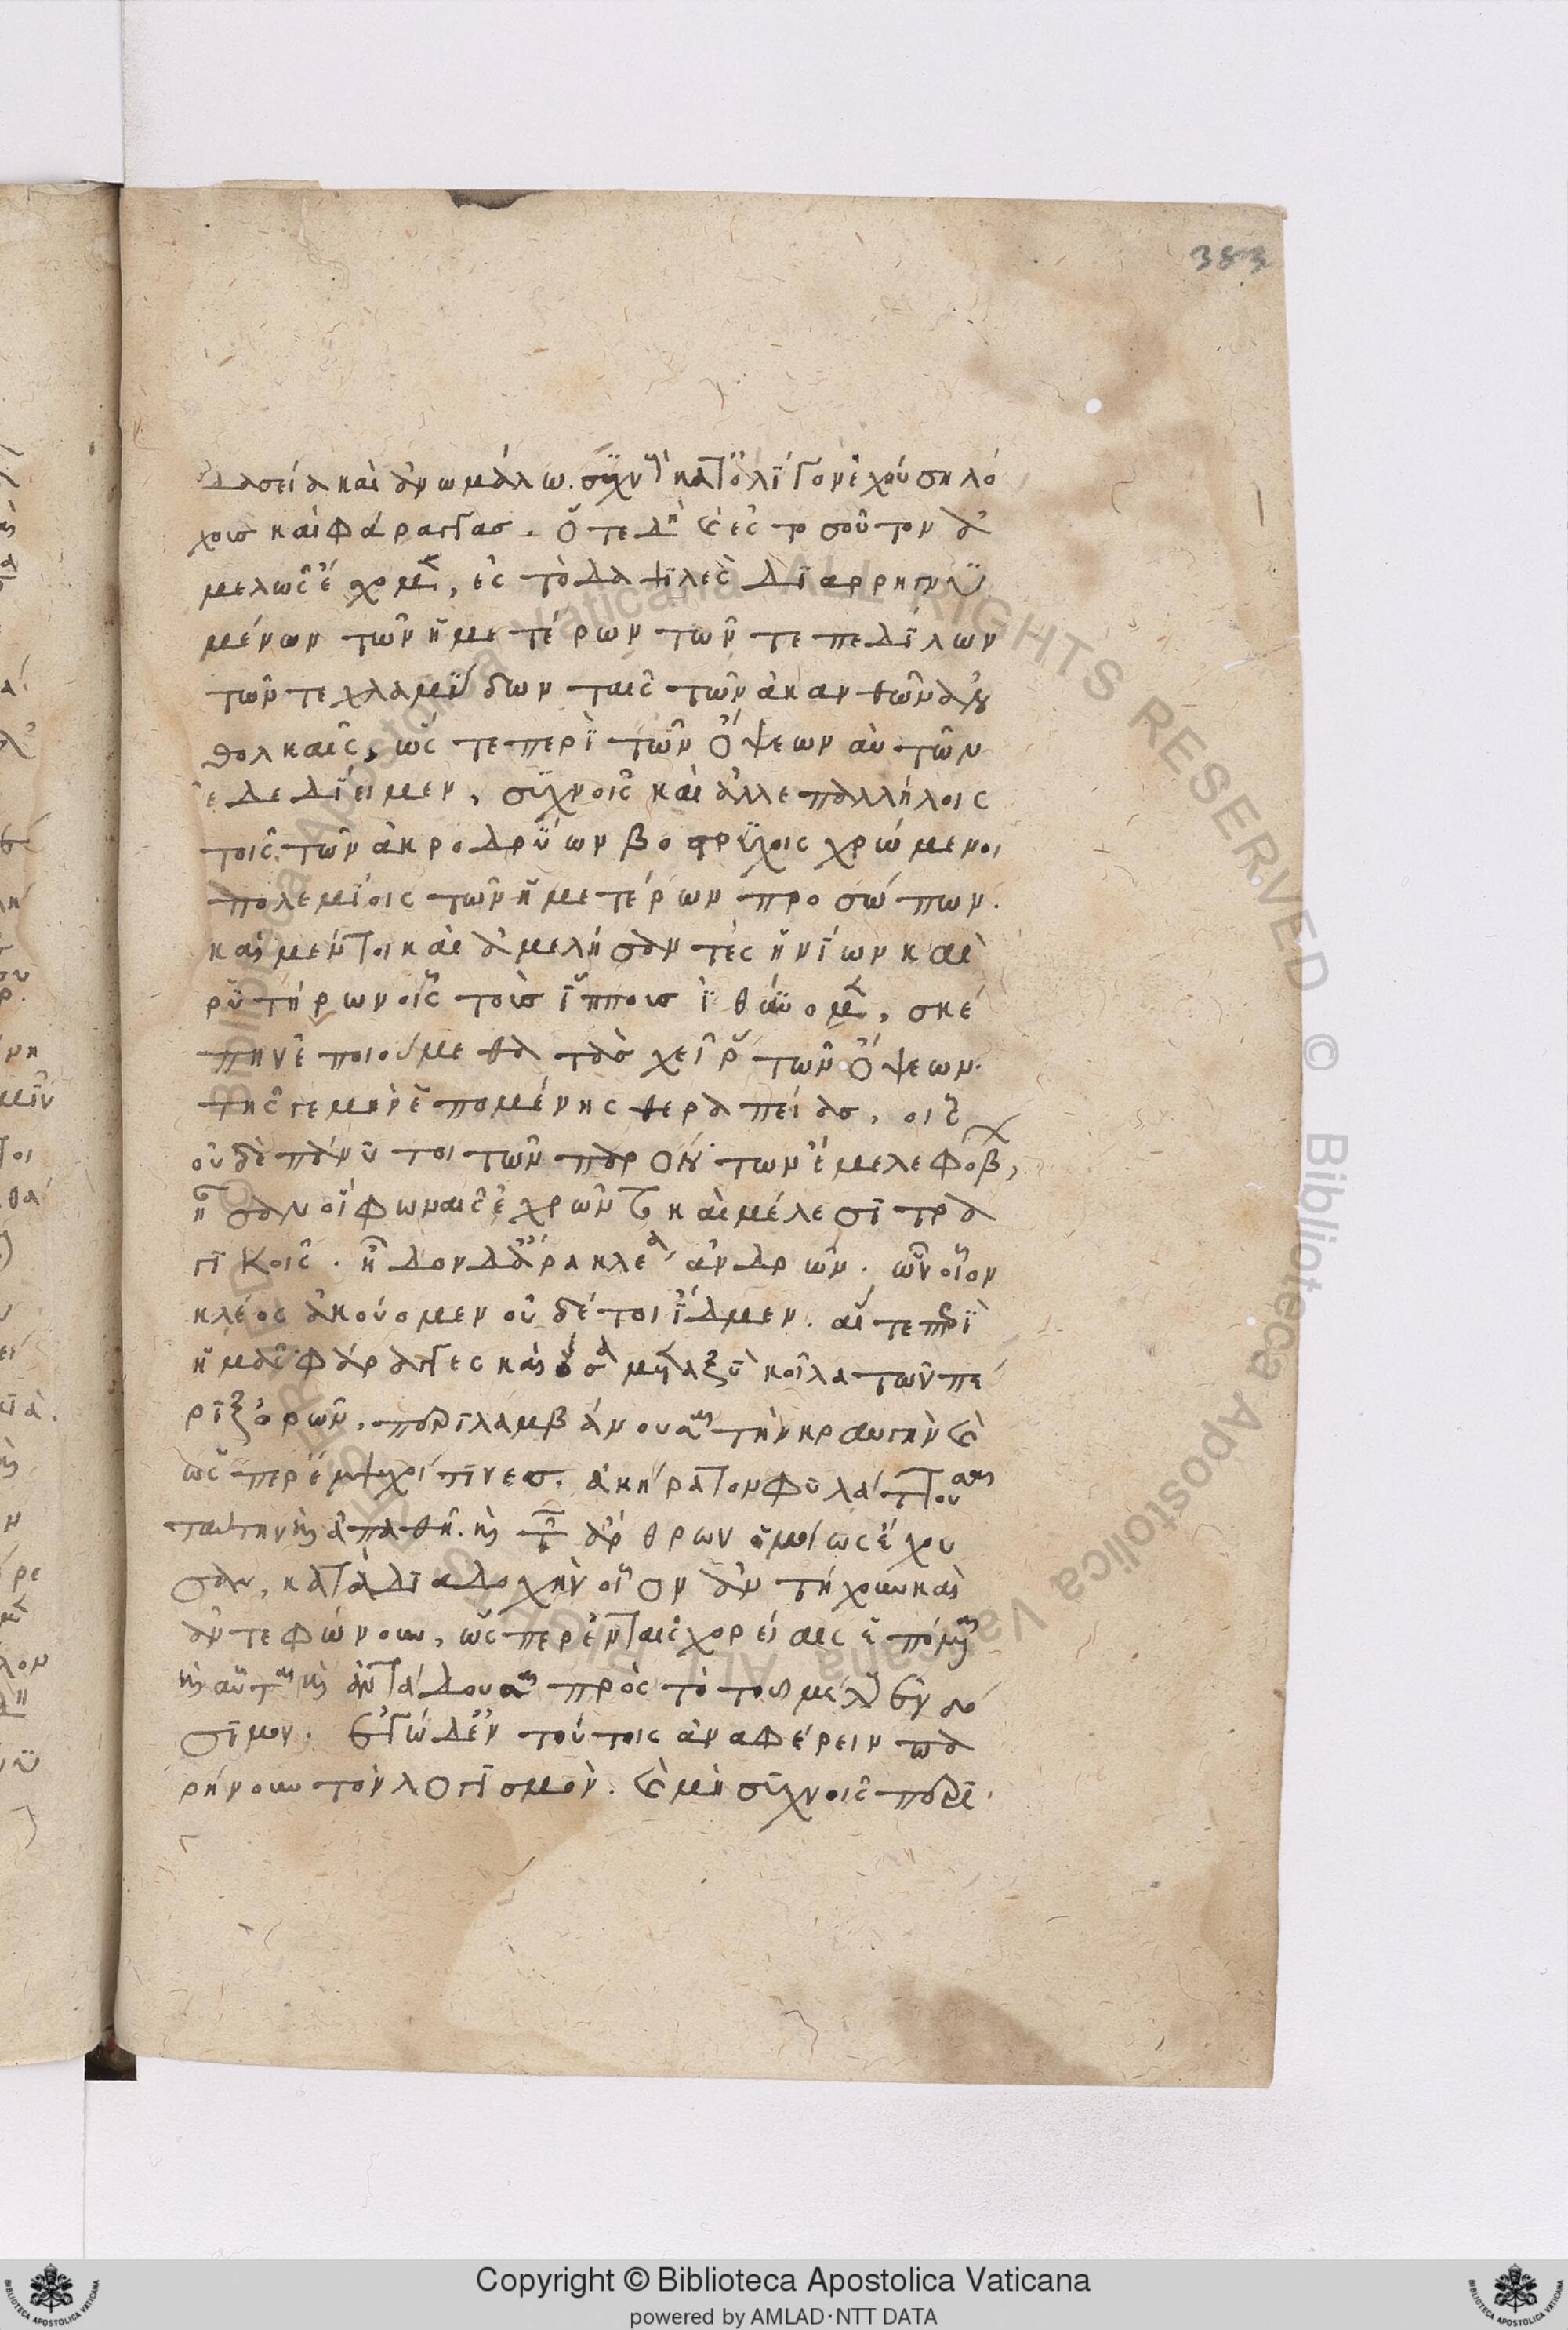 δασεία καὶ ἀνωμάλω. συχνοὺς κατ' ὀλίγον ἐχούση λό
χους καὶ φάραγγας. ὅτε δὴ καὶ ἐς τοσοῦτον ἀ
μελῶς ἔχομεν, ἐς τὸ δαψιλὲς διαρρηγνυ
μένων τῶν ἡμετέρων τῶν τε πεδίλων
τῶν τε χλαμύδων ταῖς τῶν ἀκανθῶν ἀν
θολκαῖς, ὥς τε περὶ τῶν ὄψεων αὐτῶν
ἐδεδίειμεν, συχνοῖς καὶ ἀλλεπαλλήλοις
τοῖς τῶν ἀκροδρύων βοτρύχοις χρώμενοι
πολεμίοις τῶν ἡμετέρων προσώπων.
καὶ μέντοι καὶ ἀμελήσαντες ἡνίων καὶ
ῥυτήρων οἷς τοὺς ἵππους ἰθύνομεν, σκέ
πην ἐποιούμεθα τὰς χεῖρας τῶν ὄψεων.
τῆς γε μὴν ἑπομένης θεραπείας, οἷς
οὐδὲ πάνυ τοι τῶν παρόντων ἔμελε φόβων,
ἦσαν οἳ φωναῖς ἐχρῶντο καὶ μέλεσι τρα
γικοῖς. ᾖδον δ' ἄρα κλέα ἀνδρῶν. ὧν οἶον
κλέος ἀκούομεν οὐδέ τοι ἴδμεν. αἵ τε περὶ
ἡμᾶς φάραγγες καὶ ὅσα μεταξὺ κοῖλα τῶν πέ
ριξ ὀρῶν, παραλαμβάνουσαι τὴν κραυγὴν καὶ
ὥσπερ ἔμψυχοί τινες, ἀκήρατον φυλάττουσαι
ταύτην καὶ ἀπαθῆ. καὶ τῶν ἄρθρων ὁμοίως ἔχου
σαν, κατὰ διαδοχὴν οἷον ἀντήχουν καὶ
ἀντεφώνουν, ὥσπερ ἐν ταῖς χορείαις ἑπόμεναι
καὶ αὗται καὶ ἀντάδουσαι πρὸς τὸ τοῦ μέλους ἐνδό
σιμον. ἐγὼ δ' ἐν τούτοις ἀναφέρειν πα
ρήνουν τὸν λογισμὸν. καὶ μὴ συχνοῖς περι
383
Copyright © Biblioteca Apostolica Vaticana
powered by AMLAD·NTT DATA